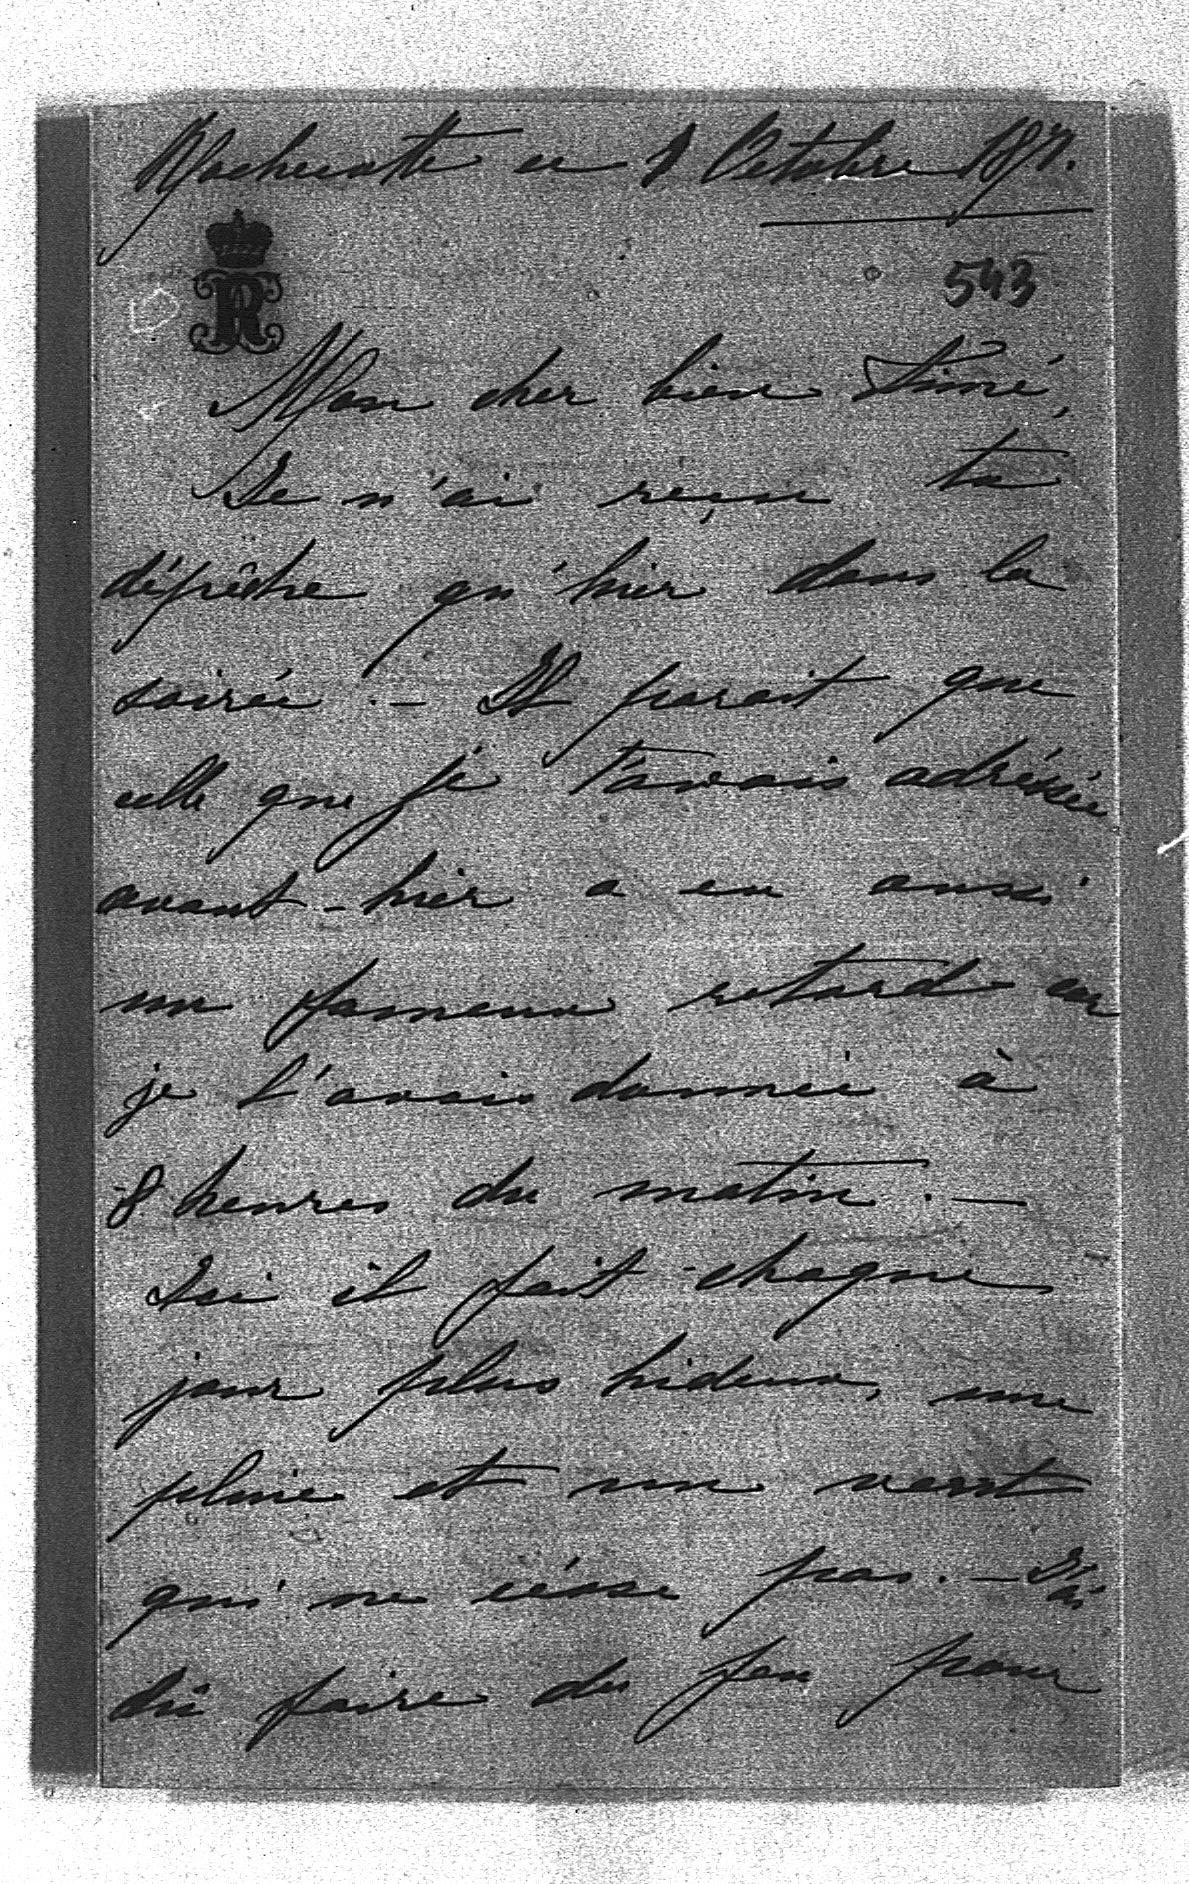 ce 8 Octobre 187.
R
543
Mon cher bien Aimé,
Je n'ai reçu ta
dépêche qu'hier dans la
soirée. - Il parait que
celle que je t'avais adréssée
avant-hier a eu aussi
un fameux retard car
je l'avais donnée à
8 heures du matin. -
Ici il fait chaque
jour plus hideux, une
pluie et un vent
qui ne césse pas. - J'ai
dû faire du feu pour